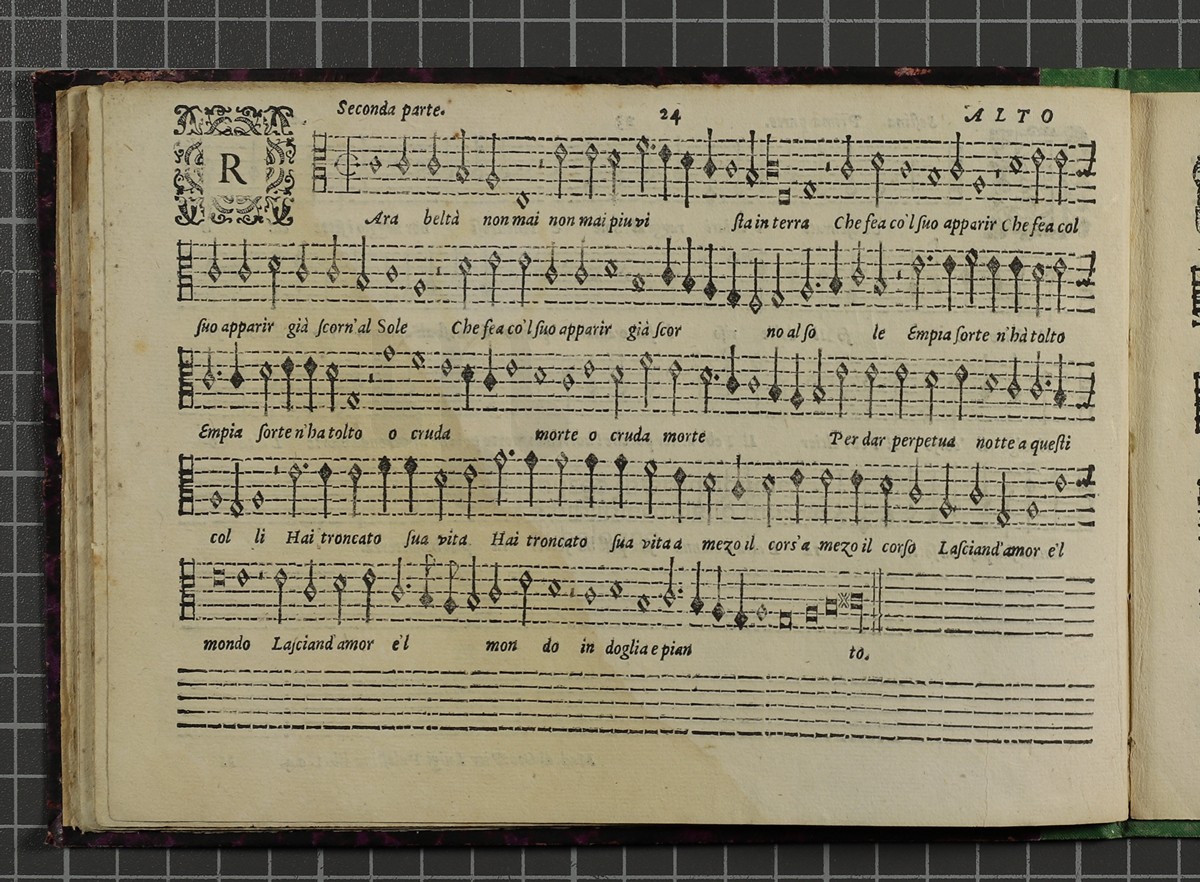 Seconda parte. 24 ALTO
RAra beltà non mai non mai piu vi ſta in terra Che fea co'l ſuo apparir Che fea col
ſuo apparir già ſcorn'al Sole Che fea co'l ſuo apparir già ſcor no al ſo le Empia ſorte n'hà tolto
Empia ſorte n'ha tolto o cruda morte o cruda morte Per dar perpetua notte a queſti
col li Hai troncato ſua vita Hai troncato ſua vita a mezo il cors'a mezo il corſo Laſciand'amor e'l
mondo Laſciand'amor e'l mon do in doglia e pian to.